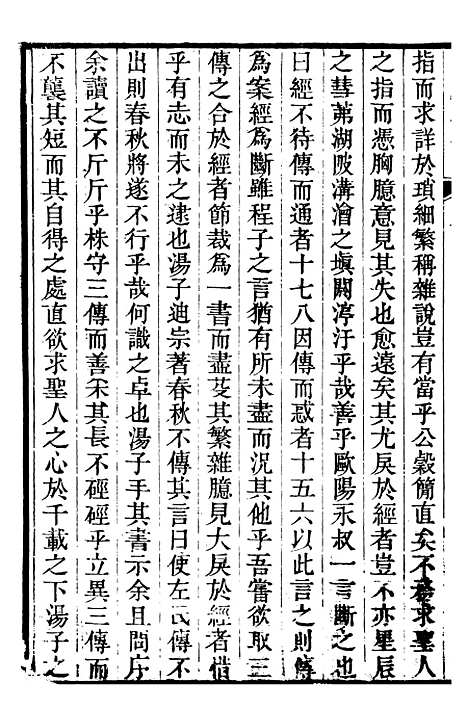 指而求詳於瑣細繁稱雜說豈有當乎公穀簡直矣不務求聖人
之指而憑胸臆意見其失也愈遠矣其尤戾於經者豈不亦星辰
之彗茀湖陂溝澮之塡閼渟汙乎哉善乎歐陽永叔一言斷之也
曰經不待傳而通者十七八因傳而惑者十五六以此言之則傳
爲案經爲斷雖程子之言猶有所未盡而況其他乎吾嘗欲取三
傳之合於經者節裁爲一書而盡芟其繁雜臆見大戾於經者惜
乎有志而未之逮也湯子迪宗著春秋不傳其言曰使左氏傳不
出則春秋將遂不行乎哉何識之卓也湯子手其書示余且問序
余讀之不斤斤乎株守三傳而善采其長不硜硜乎立異三傳而
不襲其短而其自得之處直欲求聖人之心於千載之下湯子之